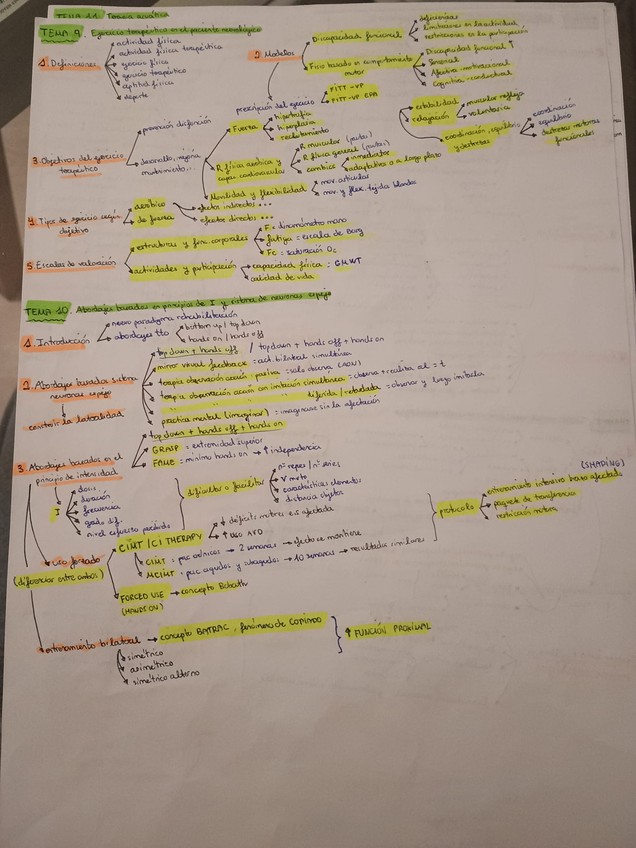 TEMA 11. Terapia acuática
TEMA 9. Ejercicio terapéutico en el paciente neurológico
1. Definiciones
actividad física
actividad física terapéutica
ejercicio físico
ejercicio terapéutico
aptitud física
deporte
2. Modelos
Discapacidad funcional
deficiencias
limitaciones en la actividad
restricciones en la participación
Fisio basada en comportamiento motor
Discapacidad funcional
Personal
Afectiva-motivacional
Cognitiva-conductual
prescripción del ejercicio
FITT-VP
FITT-VP EPA
3. Objetivos del ejercicio terapéutico
prevención disfunción
desarrollo, mejora, mantenimiento,...
Fuerza
hipertrofia
hiperplasia
reclutamiento
R física aeróbica y capac. cardiovascular
R muscular (partes)
R física general (partes)
cambios
inmediatos
adaptativos o a largo plazo
Movilidad y flexibilidad
mov. articular
mov y flex. tejidos blandos
estabilidad
relajación
muscular refleja
voluntaria
coordinación, equilibrio y destrezas
coordinación
equilibrio
destrezas motoras funcionales
4. Tipos de ejercicio según objetivo
aeróbico
de fuerza
efectos indirectos ...
efectos directos ...
5 Escalas de valoración
estructuras y func. corporales
F = dinamómetro mano
fatiga = escala de Borg
Fc = saturación O2
actividades y participación
capacidad física : 6MWT
calidad de vida
TEMA 10. Abordajes basados en principios de I y sistema de neuronas espejo
1. Introducción
nuevo paradigma rehabilitación
abordajes tto
bottom up / top down
hands on / hands off
2. Abordajes basados sistema neuronas espejo
construir la lateralidad
top down + hands off / top down + hands off + hands on
mirror visual feedback = act. bilateral simultánea
terapia observación acción pasiva = solo observa (AON)
terapia observación acción con imitación simultánea = observa + realiza al = t
" " " " diferida / retardada = observar y luego imitarla
práctica mental (imaginar) = imaginarse sin la afectación
3. Abordajes basados en el principio de intensidad
top down + hands off + hands on
GRASP = extremidad superior
FAME = mínimo hands on → ↑ independencia
I
dosis
duración
frecuencia
grado dif.
nivel esfuerzo percibido
dificultar o facilitar
nº reps / nº series
V mvto
características elementos
distancia objetos
uso forzado
(diferenciar entre ambos)
CIMT / CI THERAPY
↓ déficits motores es afectada
↑ uso AVD
CIMT = pac crónicos → 2 semanas → efecto se mantiene
MCIMT = pac agudos y subagudos → 10 semanas → resultados similares
protocolo
(SHAPING)
entrenamiento intensivo brazo afectado
paquete de transferencia
restricción motora
FORCED USE → concepto Bobath
(HANDS ON)
entrenamiento bilateral → concepto BATRAC, fenómeno de COPIADO
↑ FUNCIÓN PROXIMAL
simétrico
asimétrico
simétrico alterno